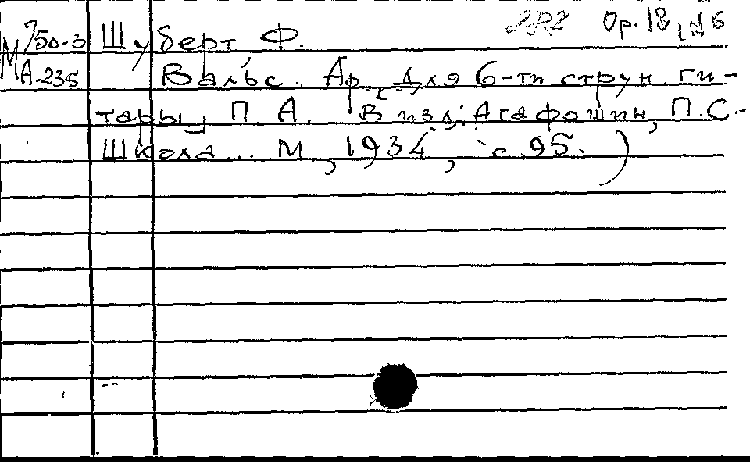 М 750-3 Шуберт Ф. Op. 18, №6
А-235 Вальс. Ар. для 6-ти струн. ги-
тары П. А. В изд: Агафошин, П.С.-
Школа... М, 1934, с 95.)